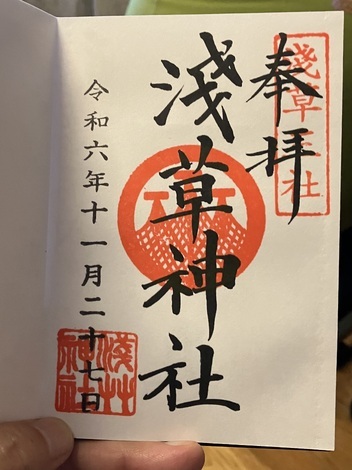 奉拝
淺草三社
淺草神社
令和六年十一月二十七日
淺草神社